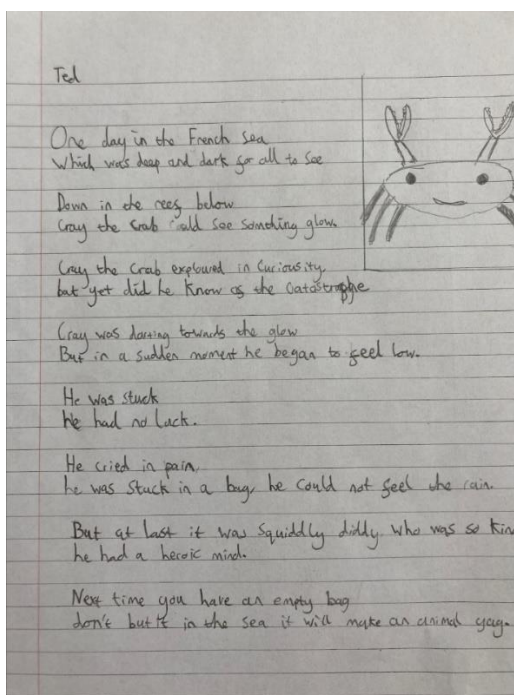 Ted
One day in the French sea
Which was deep and dark for all to see
Down in the reef below
Cray the Crab could see something glow.
Cray the Crab exploured in Curiousity,
but yet did he know of the Catastrophe
Cray was darting towards the glow
But in a sudden moment he began to feel low.
He was stuck
He had no luck.
He cried in pain,
he was stuck in a bag, he could not feel the rain.
But at last it was Squiddly diddy. Who was so kin
he had a heroic mind.
Next time you have an empty bag
don't in the sea it will make an animal gag.